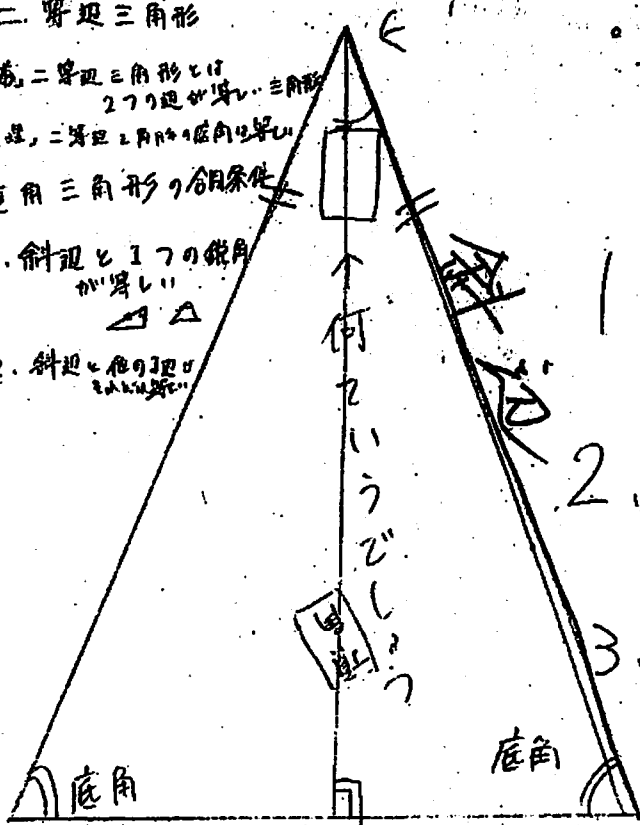 二等辺三角形
二等辺三角形とは
2つの辺が等しい三角形
二等辺三角形の底角は等しい
直角三角形の合同条件
斜辺と1つの鋭角
が等しい
2. 斜辺と他の1辺が
それぞれ等しい
何ていうでしょう
等辺
底角
底角
1
2.
3.